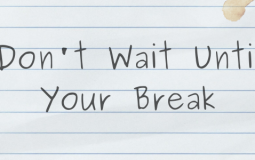 Don't Wait Unti
Your Break